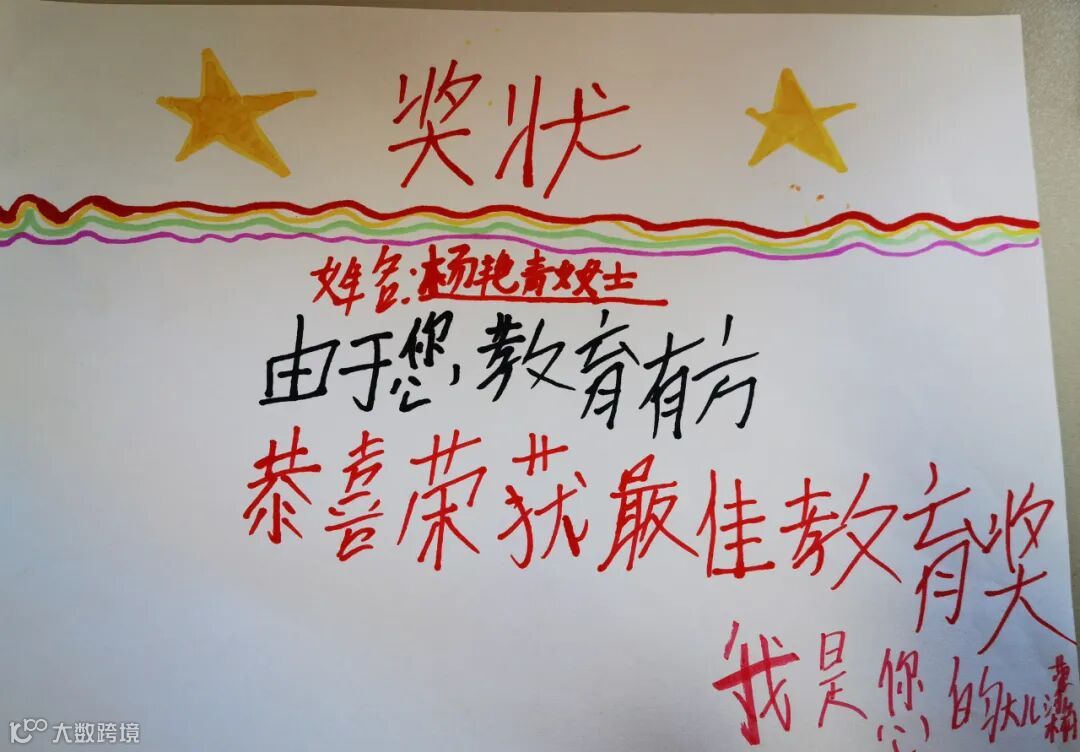 奖状
姓名:杨艳青女士
由于您,教育有方
恭喜荣获最佳教育奖
我是您的
大数跨境